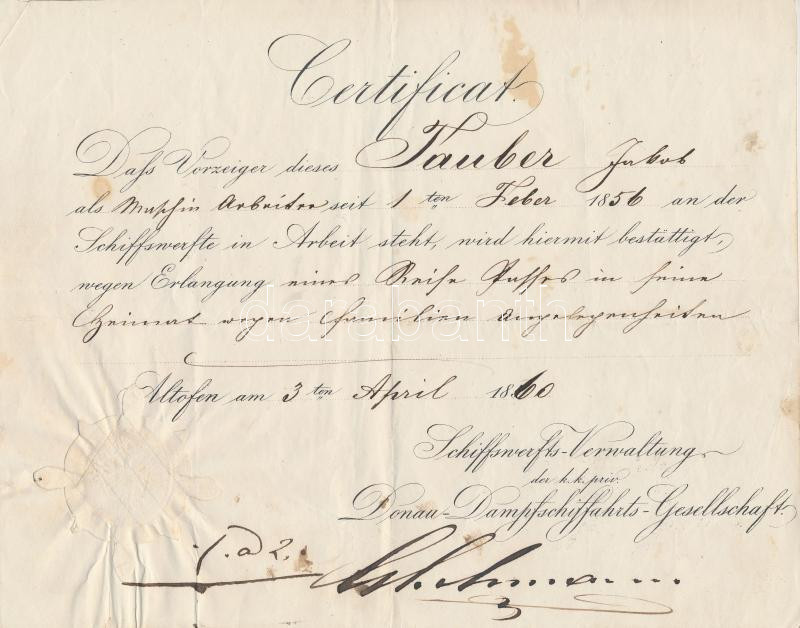 Certificat.
Dass Vorzeiger dieses Tauber Jakob
als Maschin Arbeiter seit 1 ten Feber 1856 an der
Schiffswerfte in Arbeit steht, wird hiermit bestättigt,
wegen Erlangung eines Reise Passes in seine
Heimat wegen Familien Angelegenheiten
darabanth.com
Altofen am 3 ten April 1860
Schiffswerfts-Verwaltung
der k. k. priv.
Donau-Dampfschiffahrts-Gesellschaft.